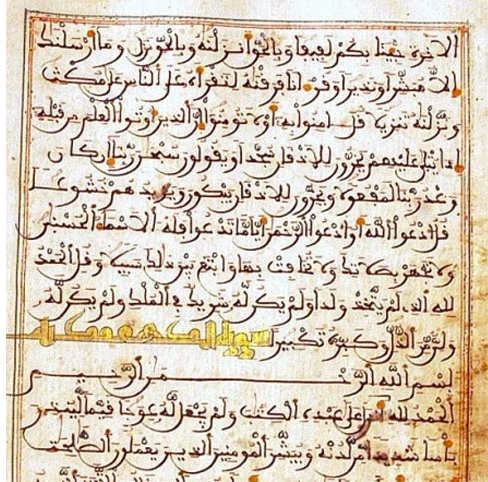 الاخرة جئنا بكم لفيفا وبالحق انزلنه وبالحق نزل وما ارسلنك
الا مبشرا ونذيرا وقرانا فرقنه لتقراه على الناس على مكث
ونزلنه تنزيلا قل امنوا به او لا تومنوا ان الذين اوتوا العلم من قبله
اذا يتلى عليهم يخرون للاذقان سجدا ويقولون سبحن ربنا ان كان
وعد ربنا لمفعولا ويخرون للاذقان يبكون ويزيدهم خشوعا
قل ادعوا الله او ادعوا الرحمن ايا ما تدعوا فله الاسماء الحسنى
ولا تجهر بصلاتك ولا تخافت بها وابتغ بين ذلك سبيلا وقل الحمد
لله الذي لم يتخذ ولدا ولم يكن له شريك في الملك ولم يكن له
ولي من الذل وكبره تكبيرا سورة الكهف
بسم الله الرحمن الرحيم
الحمد لله الذي انزل على عبده الكتب ولم يجعل له عوجا قيما لينذر
باسا شديدا من لدنه ويبشر المومنين الذين يعملون الصلحت